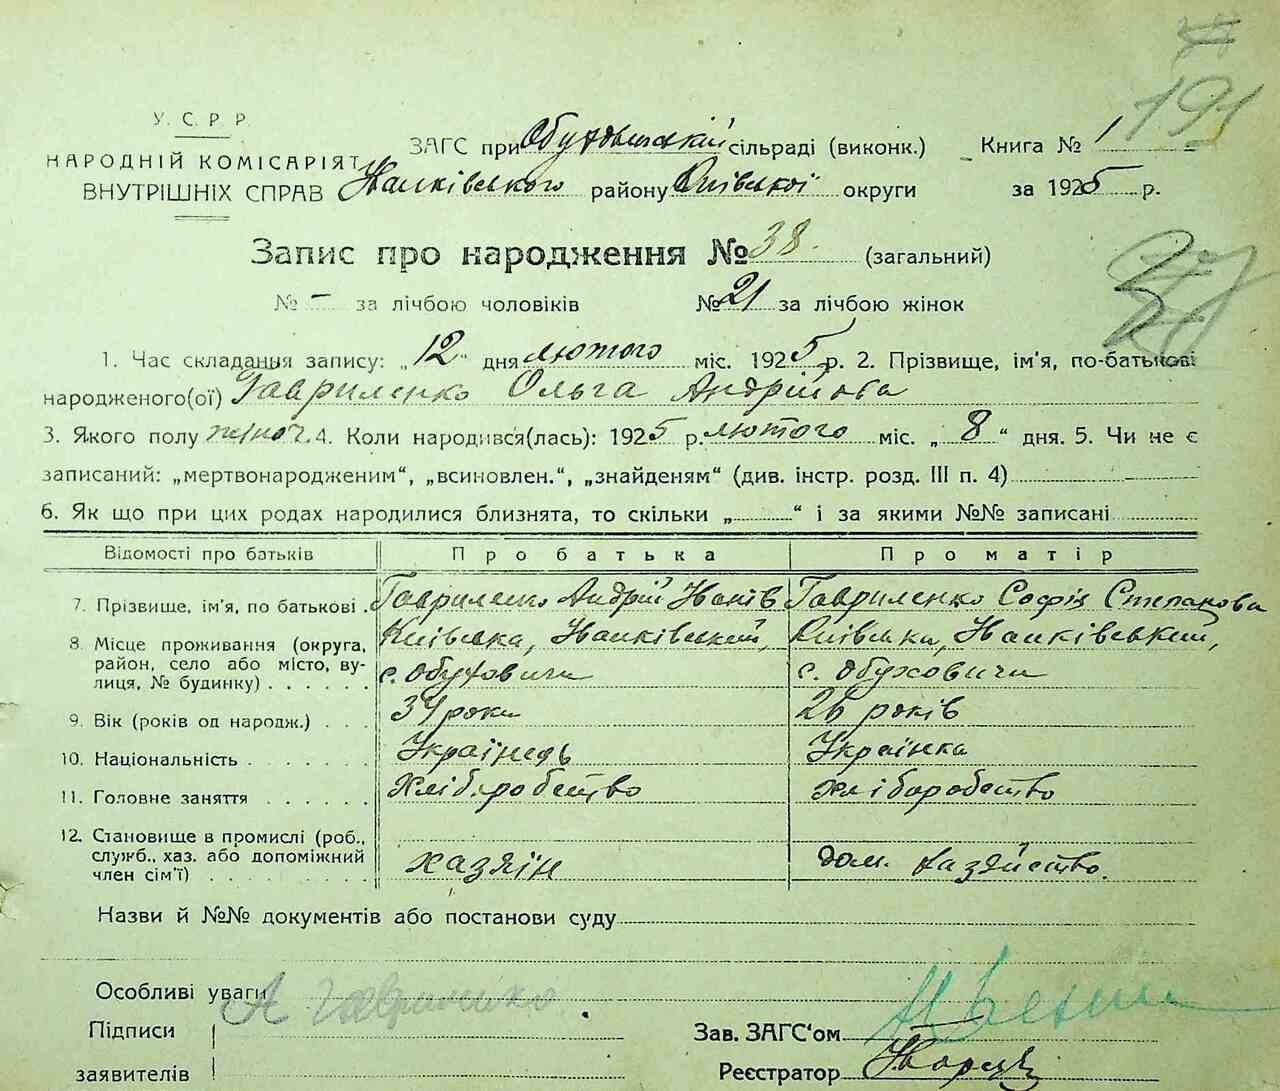 191
У. С. Р. Р.
НАРОДНІЙ КОМІСАРІЯТ
ВНУТРІШНІХ СПРАВ
ЗАГС при Обуховицькій сільраді (виконк.) Книга № 1
Іванківського району Київської округи за 1925 р.
Запис про народження № 38 (загальний)
№ – за лічбою чоловіків № 21 за лічбою жінок
1. Час складання запису: „12“ дня лютого міс. 1925 р. 2. Прізвище, ім'я, по-батькові
народженого(ої) Гавриленко Ольга Андрійова
3. Якого полу жіноч. 4. Коли народився(лась): 1925 р. лютого міс. „8“ дня. 5. Чи не є
записаний: „мертвонародженим“, „всиновлен.“, „знайденям“ (див. інстр. розд. III п. 4)
6. Як що при цих родах народилися близнята, то скільки „ “ і за якими №№ записані
Відомості про батьків Про батька Про матір
7. Прізвище, ім'я, по батькові Гавриленко Андрій Іванів Гавриленко Софія Степанова
8. Місце проживання (округа, Київська, Іванківський, Київська, Іванківський,
район, село або місто, ву-
лиця, № будинку) с. Обуховичи с. Обуховичи
9. Вік (років од народж.) 34 роки 26 років
10. Національність Українець Українка
11. Головне заняття Хліборобство хліборобство
12. Становище в промислі (роб.,
служб., хаз. або допоміжний
член сім'ї) хазяїн дом. хазяйство.
Назви й №№ документів або постанови суду
Особливі уваги
А Гавриленко
Підписи
заявителів
Зав. ЗАГС'ом
Реєстратор